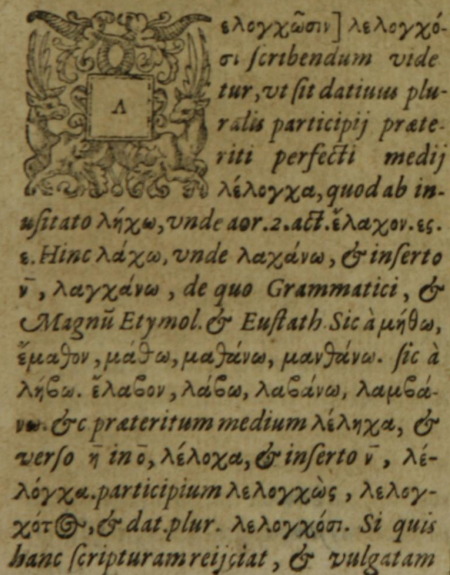 Λελογχῶσιν] λελογχό-
σι scribendum vide
tur, vt sit datiuus plu-
ralis participij præte-
riti perfecti medij
λέλογχα, quod ab in-
usitato λήχω, vnde aor. 2. act. ἔλαχον. ες.
ε. Hinc λάχω, vnde λαχάνω, & inserto
ν̄, λαγχάνω, de quo Grammatici, &
Magnū Etymol. & Eustath. Sic à μήθω,
ἔμαθον, μάθω, μαθάνω, μανθάνω. sic à
λήβω. ἔλαβον, λάβω, λαβάνω, λαμβά-
νω. &c præteritum medium λέληχα, &
verso η̄ in ο̄, λέλοχα, & inserto ν̄, λέ-
λόγχα. participium λελογχὼς, λελογ-
χότος, & dat. plur. λελογχόσι. Si quis
hanc scripturam reijciat, & vulgatam